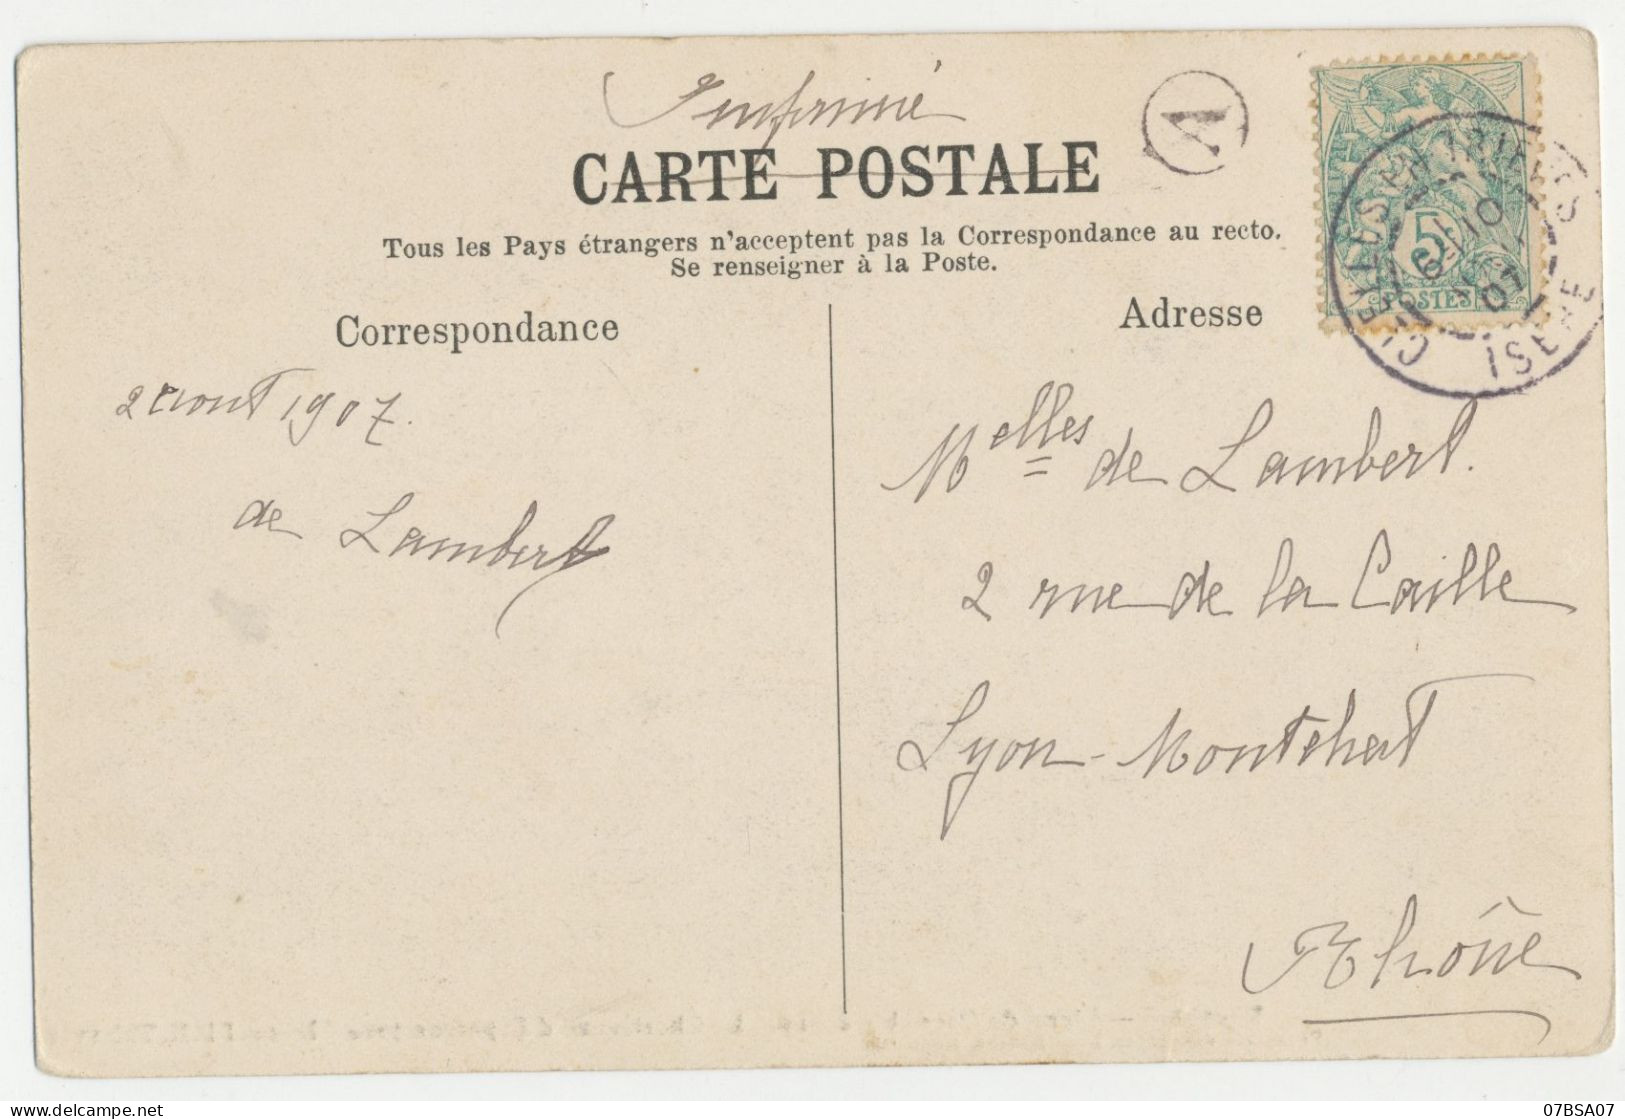 Imprimé
A
CARTE POSTALE
Tous les Pays étrangers n'acceptent pas la Correspondance au recto.
Se renseigner à la Poste.
5c
POSTES
ISERE
Correspondance
Adresse
2 aout 1907.
de Lambert
Melles de Lambert.
2 rue de la Caille
Lyon-Montchat
Rhône
07BSA07